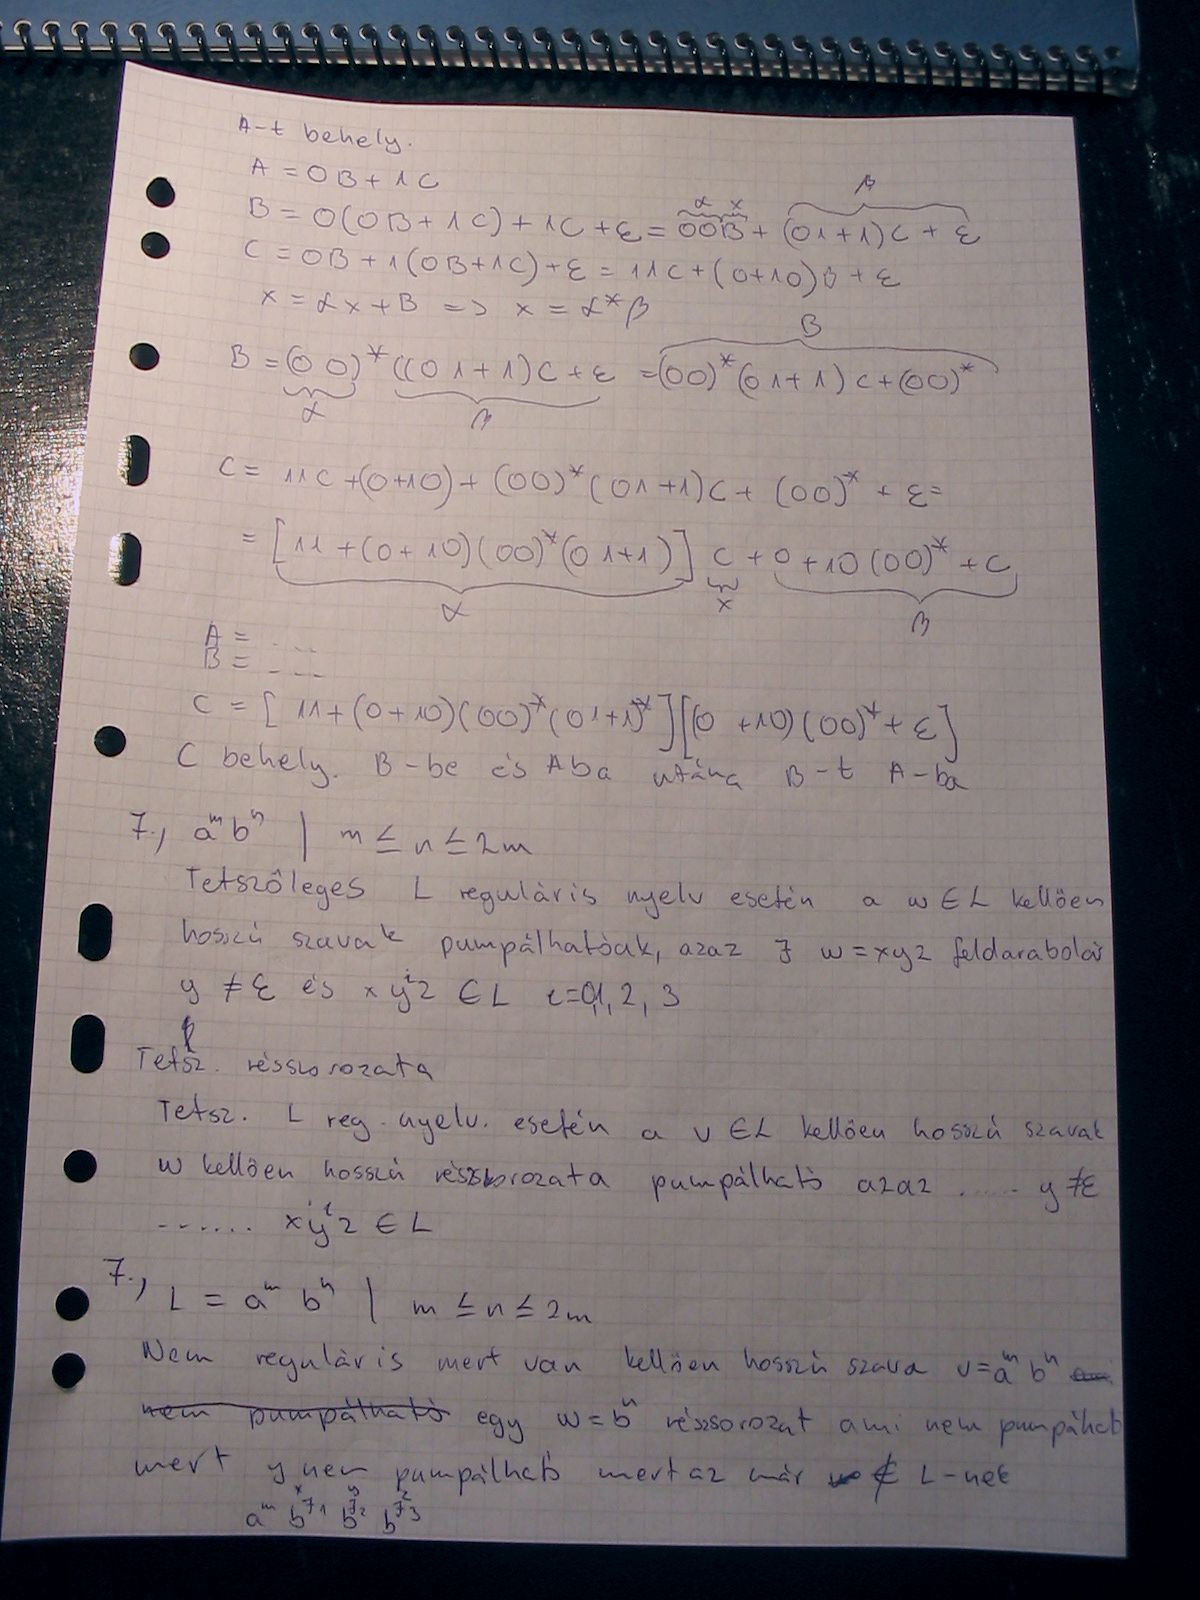 A-t behely.
A = 0B + 1C
α x β
B = 0(0B + 1C) + 1C + ε = 00B + (01+1)C + ε
C = 0B + 1(0B+1C) + ε = 11C + (0+10)B + ε
x = αx + B => x = α*β
B
B = (00)*((01+1)C + ε = (00)*(01+1)C + (00)*
α β
C = 11C + (0+10) + (00)*(01+1)C + (00)* + ε =
= [11 + (0+10)(00)*(01+1)] C + 0 + 10(00)* + C
α x β
A = .....
B = - - -
C = [11+(0+10)(00)*(01+1)*][(0 +10)(00)* + ε]
C behely. B-be és Aba utána B-t A-ba
7., a^m b^n | m ≤ n ≤ 2m
Tetszőleges L reguláris nyelv esetén a w ∈ L kellően
hosszú szavak pumpálhatóak, azaz ∃ w = xyz feldarabolás
y ≠ ε és x y^i z ∈ L i=0,1, 2, 3
Tetsz. résszorozata
Tetsz. L reg. nyelv. esetén a v ∈ L kellően hosszú szavak
w kellően hosszú részsorozata pumpálható azaz ..... y ≠ ε
...... x y^i z ∈ L
7., L = a^m b^n | m ≤ n ≤ 2m
Nem reguláris mert van kellően hosszú szava v = a^m b^n
nem pumpálható egy w = b^n részsorozat ami nem pumpálható
mert y nem pumpálható mert az már ∉ L-nek
x y z
a^m b^71 b^72 b^73